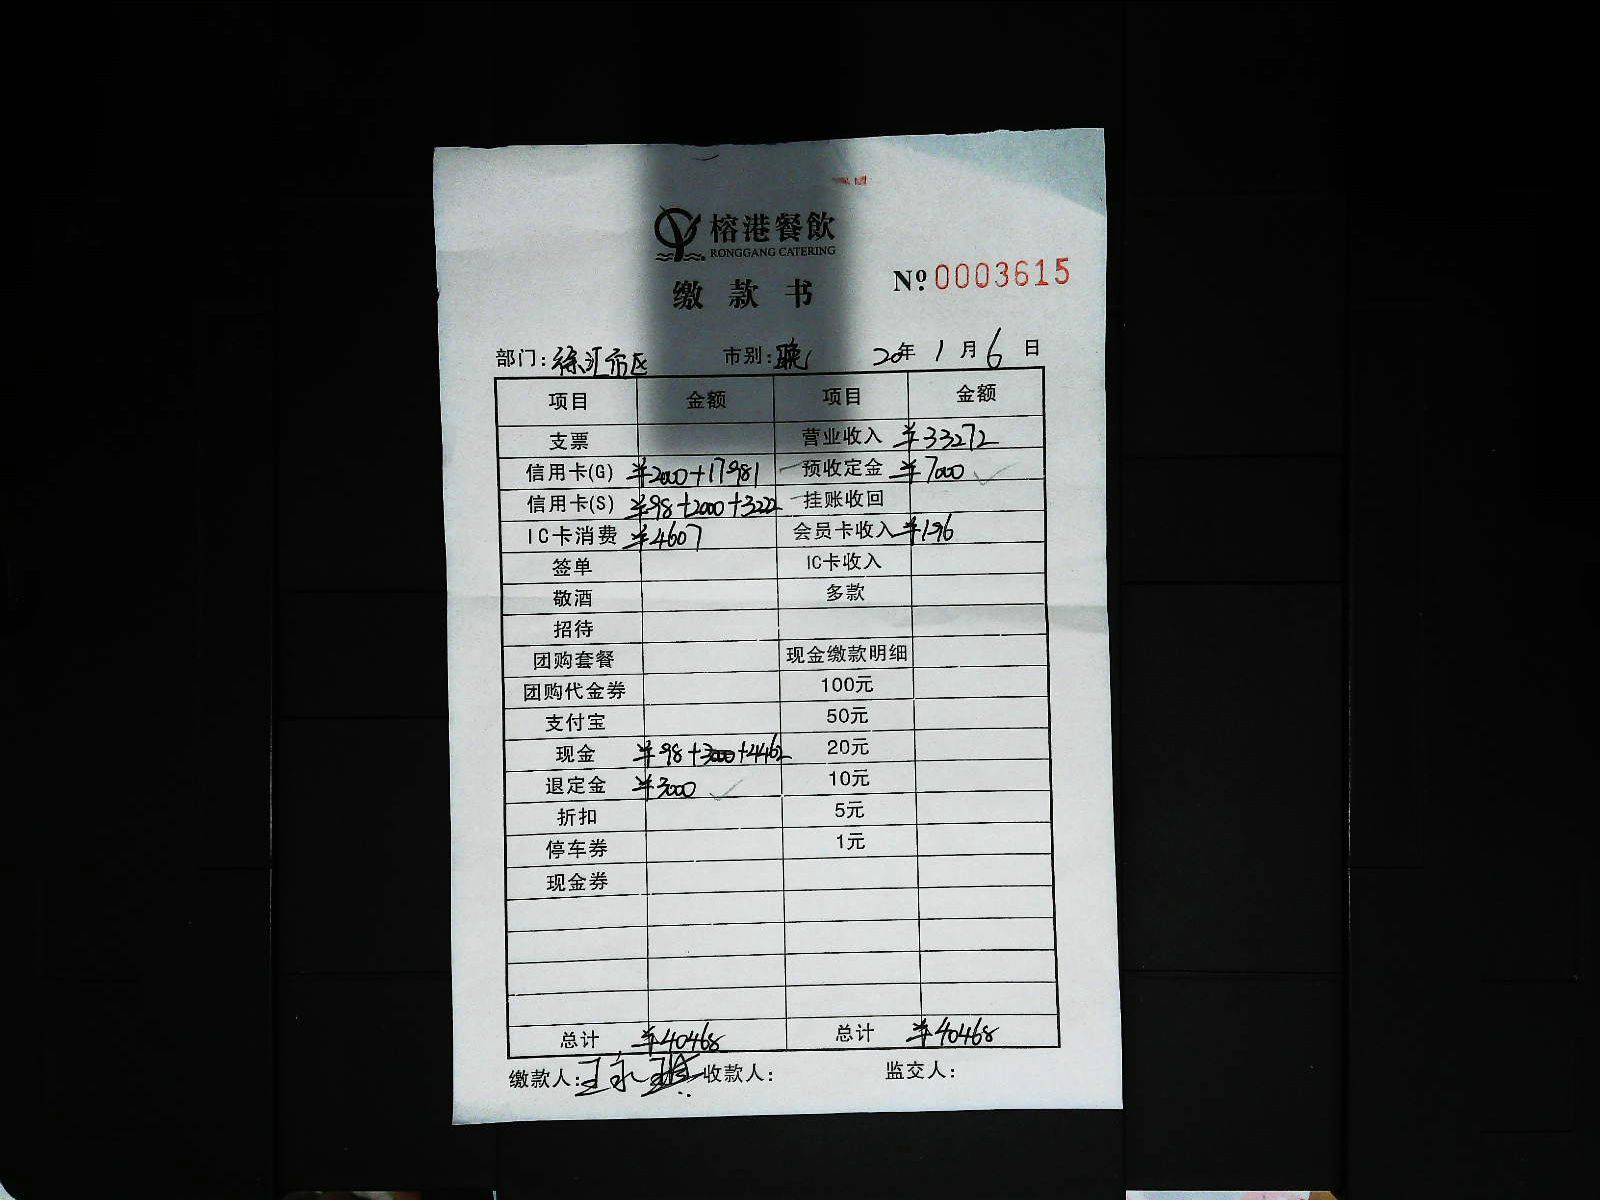 榕港餐飲
RONGGANG CATERING
缴款书
№ 0003615
部门: 徐汇市区 市别: 晚 20年 1月 6日
项目 金额 项目 金额
支票 营业收入 ¥33272
信用卡(G) ¥2000+17981 预收定金 ¥7000
信用卡(S) ¥98+2000+3222 挂账收回
IC卡消费 ¥4607 会员卡收入 ¥196
签单 IC卡收入
敬酒 多款
招待
团购套餐 现金缴款明细
团购代金券 100元
支付宝 50元
现金 ¥98+3000+4462 20元
退定金 ¥3000 10元
折扣 5元
停车券 1元
现金券
总计 ¥40468 总计 ¥40468
缴款人: 王永 收款人: 监交人: